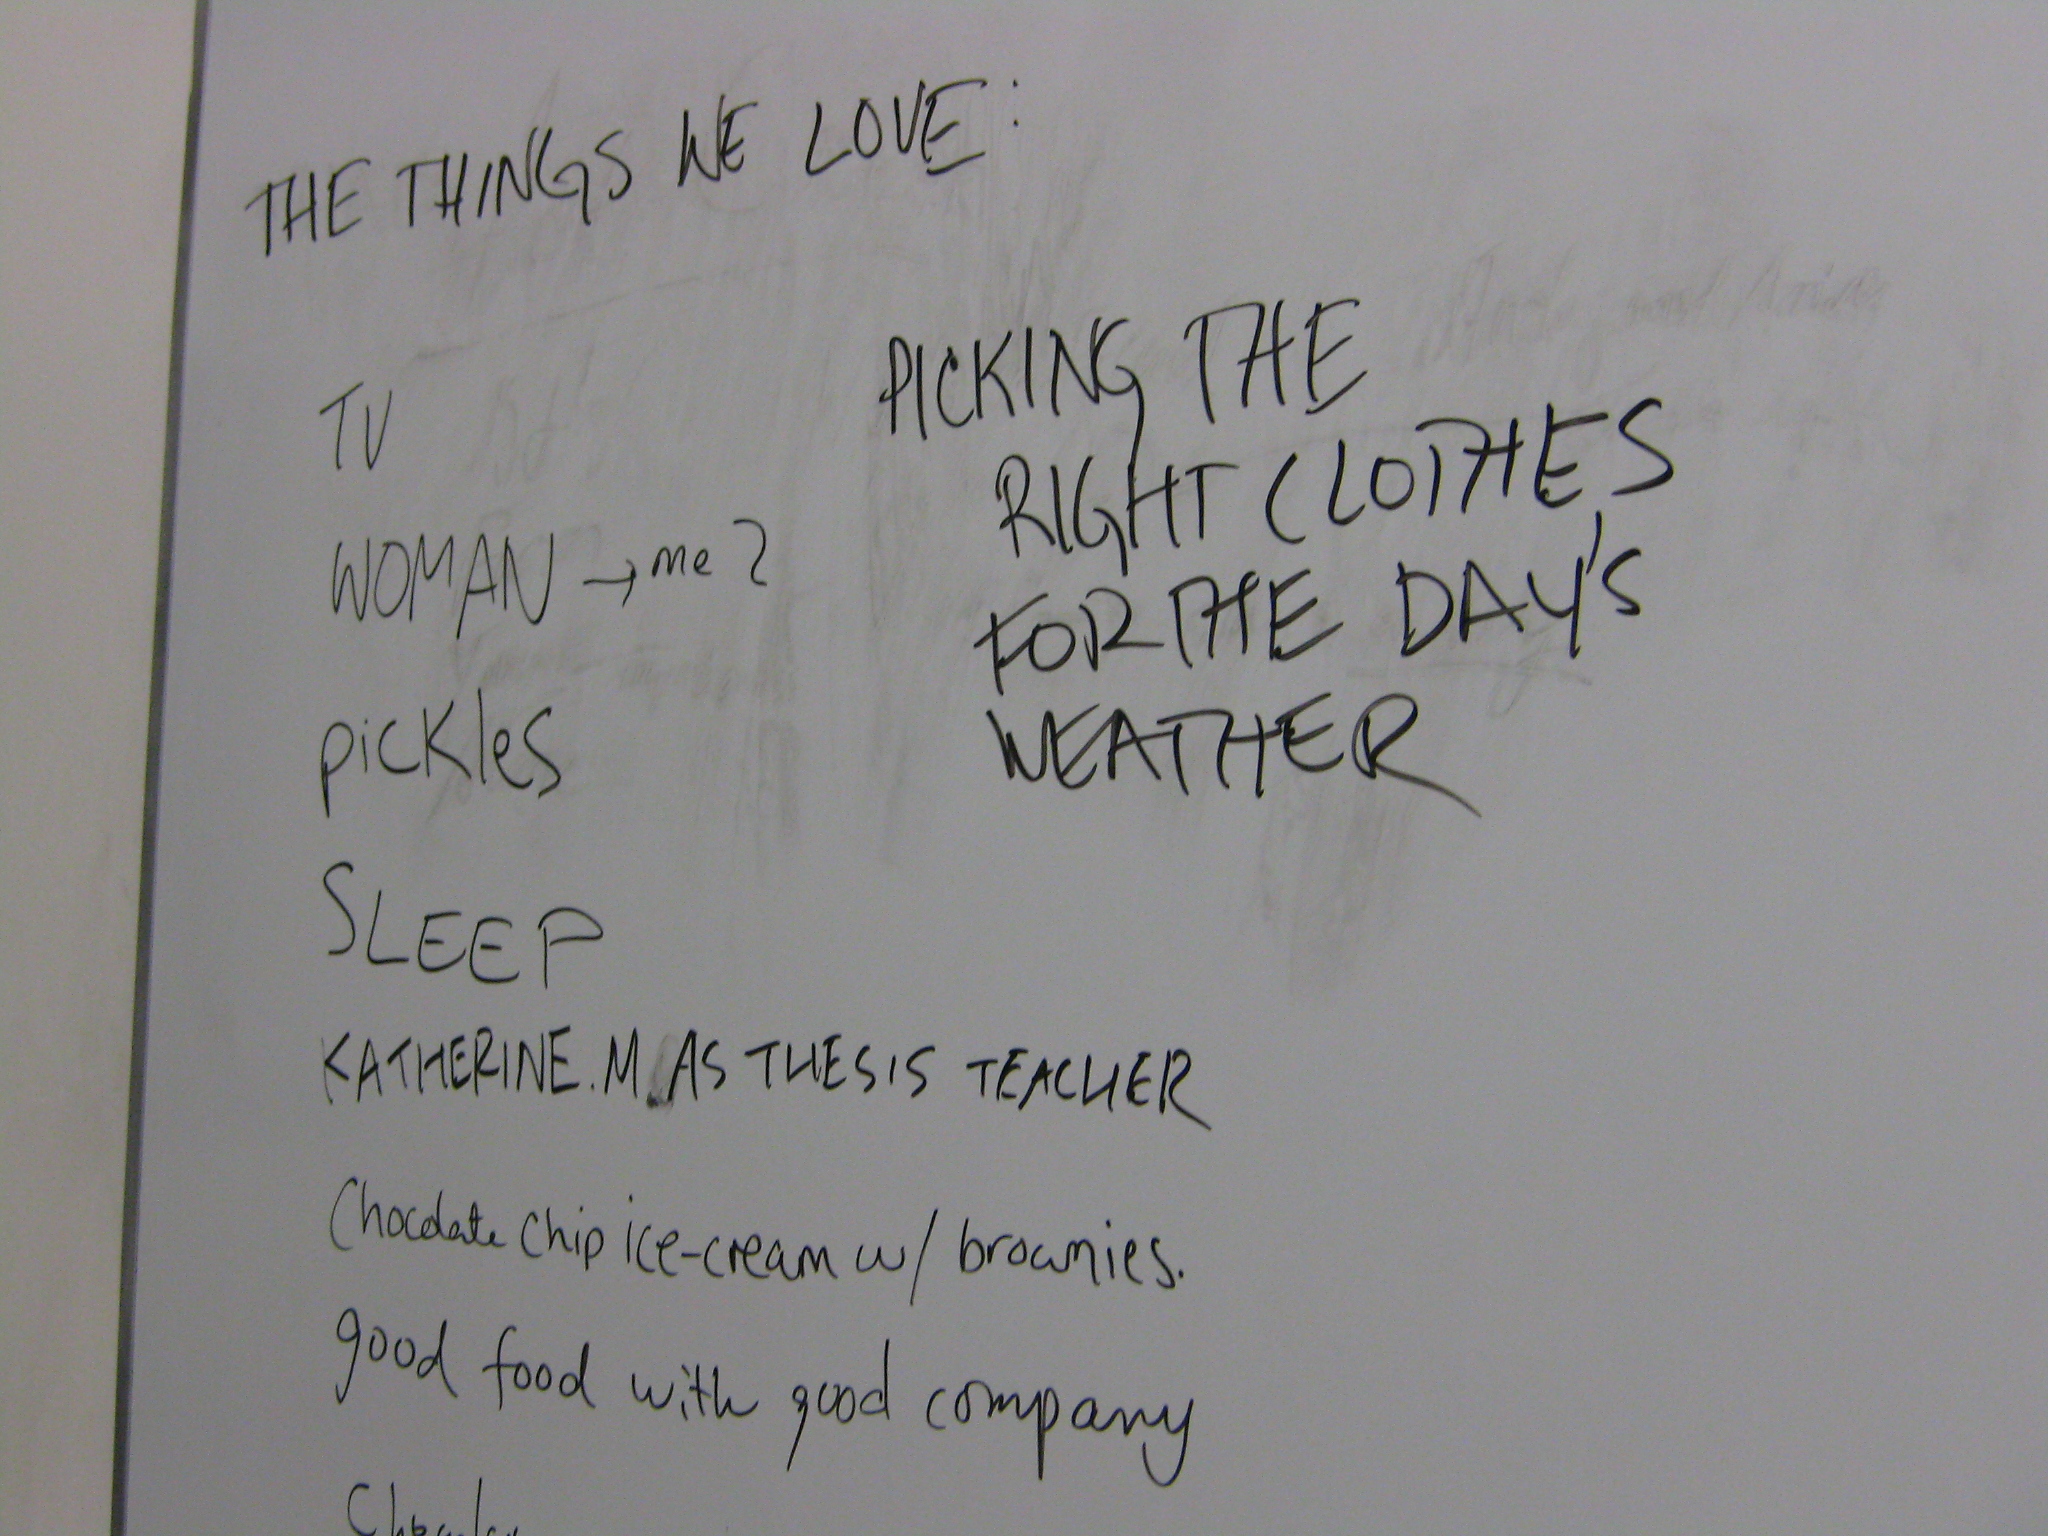 THE THINGS WE LOVE:
TV
WOMAN → me?
pickles
SLEEP
KATHERINE.M. AS THESIS TEACHER
Chocolate chip ice-cream w/ brownies.
good food with good company
PICKING THE
RIGHT CLOTHES
FOR THE DAY'S
WEATHER